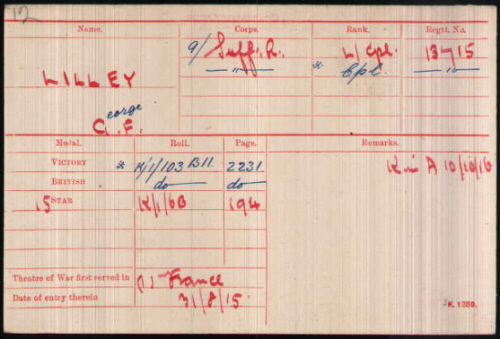 12
Name. Corps. Rank. Regtl. No.
9/ Suff. R. L/Cpl. 13715
—"— * Cpl. —"—
LILLEY
George
G. F.
Medal. Roll. Page. Remarks.
VICTORY * K/1/103 B11 2231 K in A 10/10/16
BRITISH do do
15 STAR K/1/6B 194
Theatre of War first served in (1) France
Date of entry therein 31/8/15.
K. 1380.